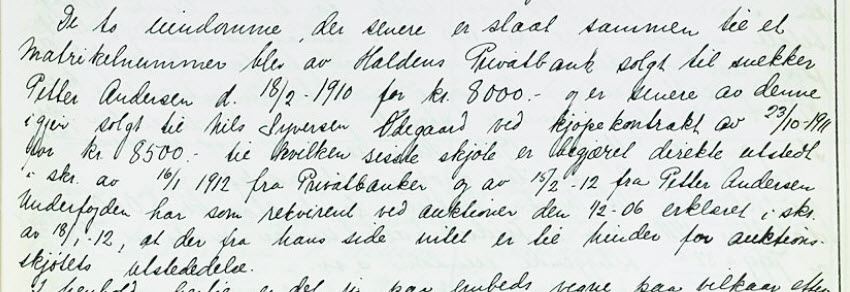 De to eiendomme, der senere er slaat sammen til et
Matrikelnummer blev av Haldens Privatbank solgt til snekker
Petter Andersen d. 18/2-1910 for kr. 8000.- og er senere av denne
igjen solgt til Nils Syversen Ødegaard ved kjøpekontrakt av 23/10-1911
for kr. 8500.- til hvilken sisste skjøte er begjæret direkte utstedt
i skr. av 16/1 1912 fra Privatbanken og av 15/2-12 fra Petter Andersen
Underfogden har som rekvirent ved auktionen den 1/2-06 erklæret i skr.
av 18/1-12, at der fra hans side intet er til hinder for auktions-
skjøtets utstededelse.
I henhold hertil er det jeg paa embeds vegne paa vilkaar efter